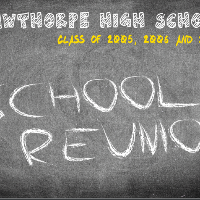 WTHORPE HIGH SCHO
CLASS OF 2005, 2006 AND
SCHOOL
REUNIO